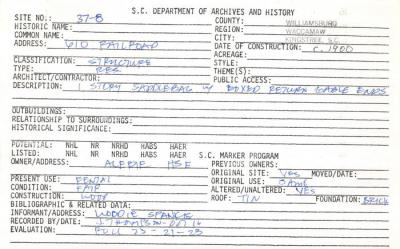 S.C. DEPARTMENT OF ARCHIVES AND HISTORY
SITE NO.: 37-8
COUNTY: WILLIAMSBURG
HISTORIC NAME:
REGION: WACCAMAW
COMMON NAME:
CITY: KINGSTREE, S.C.
ADDRESS: 610 RAILROAD
DATE OF CONSTRUCTION: C. 1900
ACREAGE:
CLASSIFICATION: STRUCTURE
STYLE:
TYPE: RES.
THEME(S):
ARCHITECT/CONTRACTOR:
PUBLIC ACCESS:
DESCRIPTION: 1 STORY SADDLEBAG W/ BOXED RETURN GABLE ENDS
OUTBUILDINGS:
RELATIONSHIP TO SURROUNDINGS:
HISTORICAL SIGNIFICANCE:
POTENTIAL: NHL NR NRHD HABS HAER
LISTED: NHL NR NRHD HABS HAER S.C. MARKER PROGRAM
OWNER/ADDRESS: HSE
PREVIOUS OWNERS:
ORIGINAL SITE: YES MOVED/DATE:
PRESENT USE: RENTAL
ORIGINAL USE: SAME
CONDITION: FAIR
ALTERED/UNALTERED: YES
CONSTRUCTION: WOOD
ROOF: TIN FOUNDATION: BRICK
BIBLIOGRAPHIC & RELATED DATA:
INFORMANT/ADDRESS: WOODIE
RECORDED BY/DATE: J. THOMPSON
EVALUATION: ROLL 23-21-23